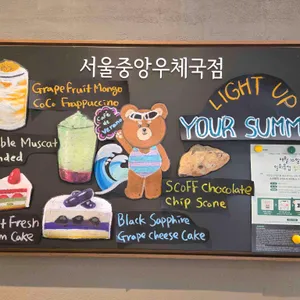 서울중앙우체국점
Grapefruit Mango
CoCo Frappuccino
LIGHT UP
YOUR SUMM
Café de
ble Muscat
nded
SCOFF Chocolate
Chip Scone
t Fresh
m Cake
Black Sapphire
Grape Cheese Cake